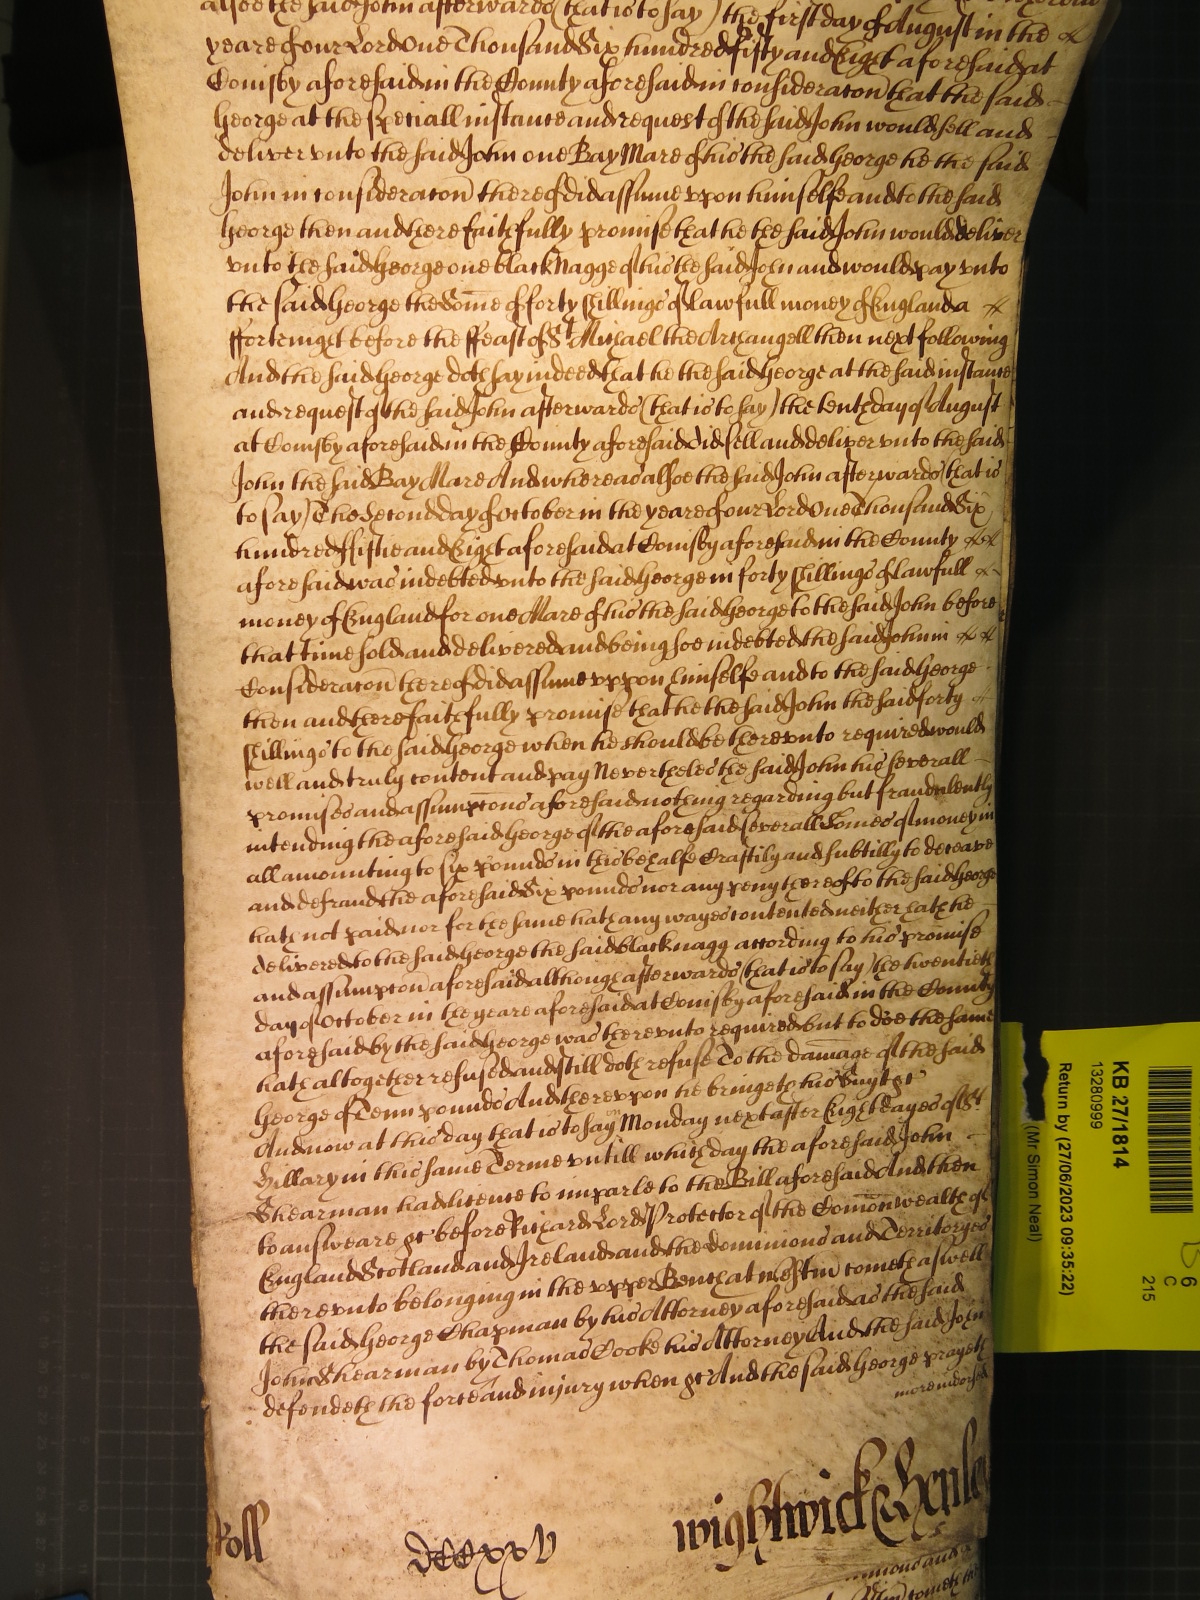 alsoe the said John afterwards (that is to say) the first day of August in the
yeare of our Lord One Thousand Six hundred fifty and Eight aforesaid at
Conisby aforesaid in the County aforesaid in consideracon that the said
George at the speciall instance and request of the said John would sell and
deliver vnto the said John one Bay Mare of his the said George he the said
John in consideracon thereof did assume vpon himselfe and to the said
George then and there faithfully promise that he the said John would deliver
vnto the said George one black Nagge of his the said John and would pay vnto
the said George the Some of forty shillings of lawfull money of England a
ffortnight before the ffeast of St Michael the Archangell then next following
And the said George doth say indeed that he the said George at the said instance
and request of the said John afterwards (that is to say) the tenth day of August
at Conisby aforesaid in the County aforesaid did sell and deliver vnto the said
John the said Bay Mare And whereas alsoe the said John afterwards (that is
to say) The Second day of October in the yeare of our Lord One Thousand Six
hundred ffiftie and Eight aforesaid at Conisby aforesaid in the County
aforesaid was indebted vnto the said George in forty shillings of lawfull
money of England for one Mare of his the said George to the said John before
that time sold and delivered and being soe indebted the said John in
Consideracon thereof did assume vppon himselfe and to the said George
then and there faithfully promise that he the said John the said forty
shillings to the said George when he should be therevnto required would
well and truly content and pay Neverthelesse the said John his severall
promises and assumpcons aforesaid nothing regarding but fraudulently
intending the aforesaid George of the aforesaid severall Somes of money in
all amounting to six pounds in this behalfe Craftily and subtilly to deceave
and defraud the aforesaid Six pounds nor any peny thereof to the said George
hath not paid nor for the same hath any wayes contented neither hath he
delivered to the said George the said black nagg according to his promise
and assumpcon aforesaid although afterwards (that is to say) the twentieth
day of October in the yeare aforesaid at Conisby aforesaid in the County
aforesaid by the said George was therevnto required but to doe the same
hath altogether refused and still doth refuse To the damage of the said
George of Tenn pounds And therevpon he bringeth his Suyt &c
And now at this day that is to say on Monday next after Eight dayes of St
Hillary in this same Terme vntill which day the aforesaid John
Shearman had licence to imparle to the Bill aforesaid And then
to answeare &c before Richard Lord Protector of the Comonwealth of
England Scotland and Ireland and the dominions and Territoryes
therevnto belonging in the vpper Bench at Westm cometh aswell
the said George Chapman by his Attorney aforesaid as the said
John Shearman by Thomas Cooke his Attorney And the said John
defendeth the force and injury when &c And the said George prayeth
more indorsed
Roll
dccxxv
wightwick & Henley
KB 27/1814
13280999
Return by (27/06/2023 09:35:22)
(Mr Simon Neal)
B 6
C
215